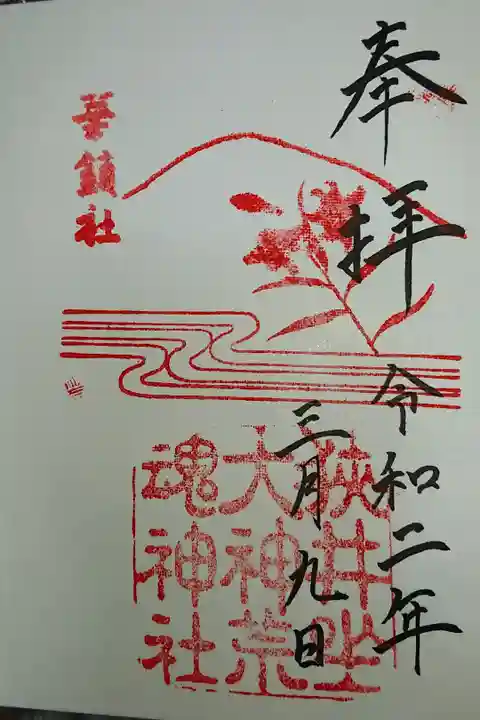 奉拝
令和二年
三月九日
華鎮社
狹井坐
大神荒
魂神社